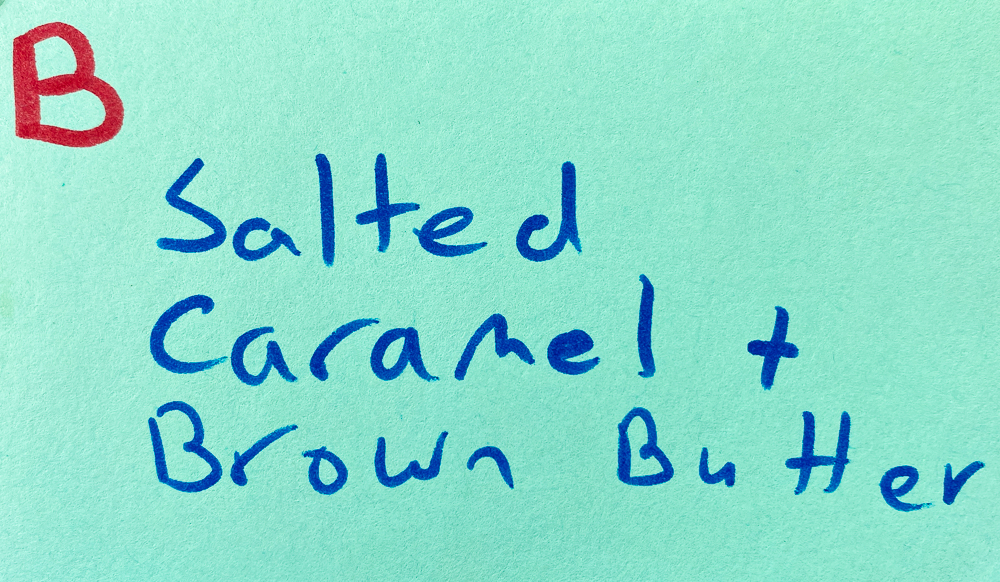 B
Salted
Caramel +
Brown Butter